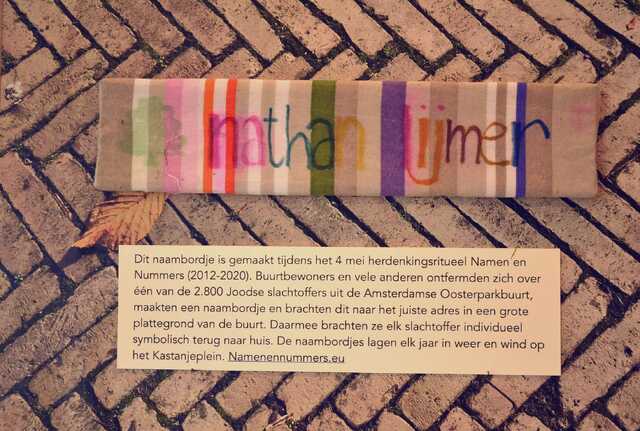 nathan lijmer
Dit naambordje is gemaakt tijdens het 4 mei herdenkingsritueel Namen en
Nummers (2012-2020). Buurtbewoners en vele anderen ontfermden zich over
één van de 2.800 Joodse slachtoffers uit de Amsterdamse Oosterparkbuurt,
maakten een naambordje en brachten dit naar het juiste adres in een grote
plattegrond van de buurt. Daarmee brachten ze elk slachtoffer individueel
symbolisch terug naar huis. De naambordjes lagen elk jaar in weer en wind op
het Kastanjeplein. Namenennummers.eu